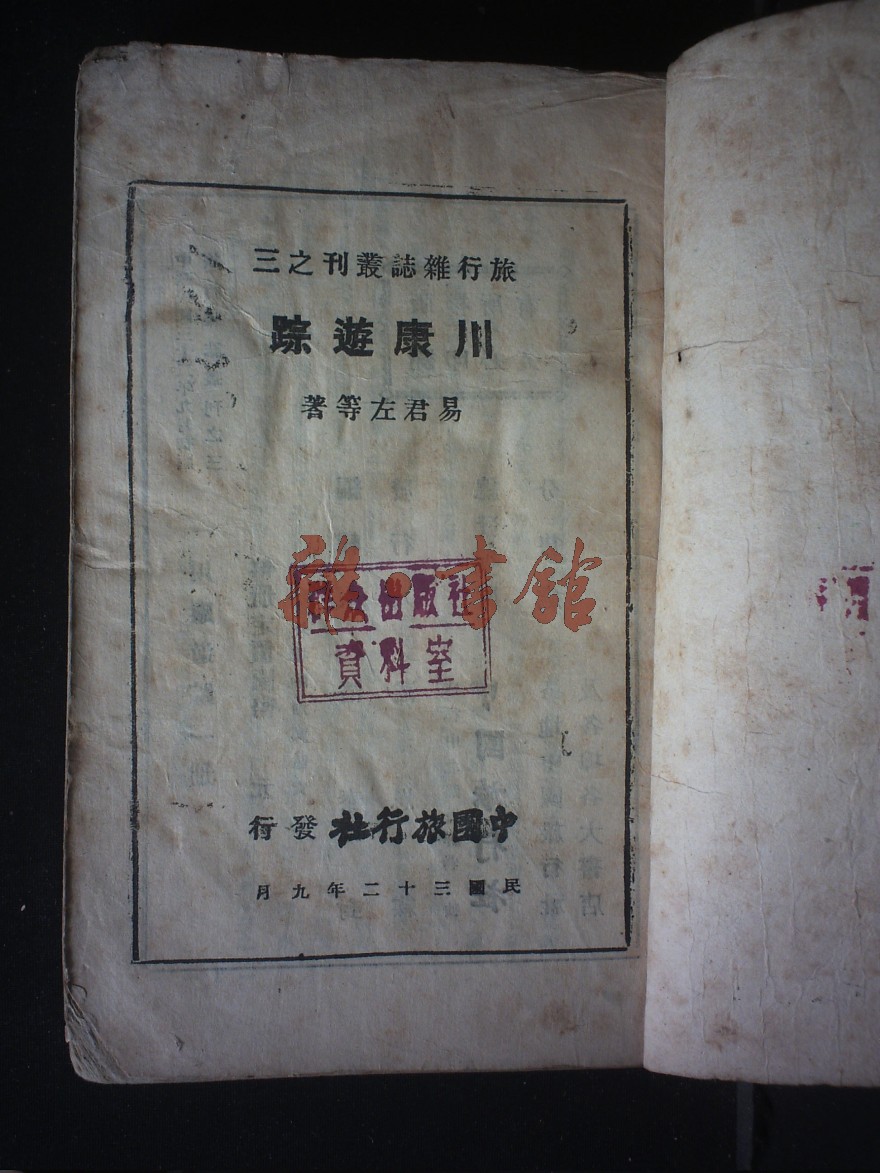 旅行雜誌叢刊之三
川康遊踪
易君左等著
雜·書館
出版社
資料室
中國旅行社發行
民國三十二年九月